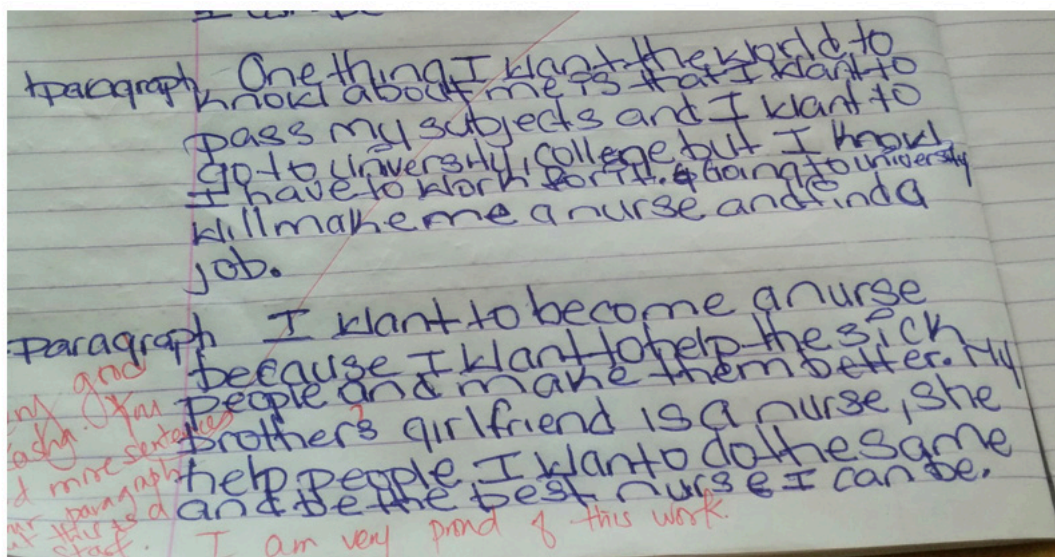 paragraph One thing I want the world to
know about me is that I want to
pass my subjects and I want to
go to university, college but I know
I have to work for it. Going to university
will make me a nurse and find a
job.
paragraph I want to become a nurse
because I want to help the sick
people and make them better. My
brother's girlfriend is a nurse, she
help people I want to do the same
and be the best nurse I can be.
good
You
more sentences
paragraph
this is a
start. I am very proud of this work.